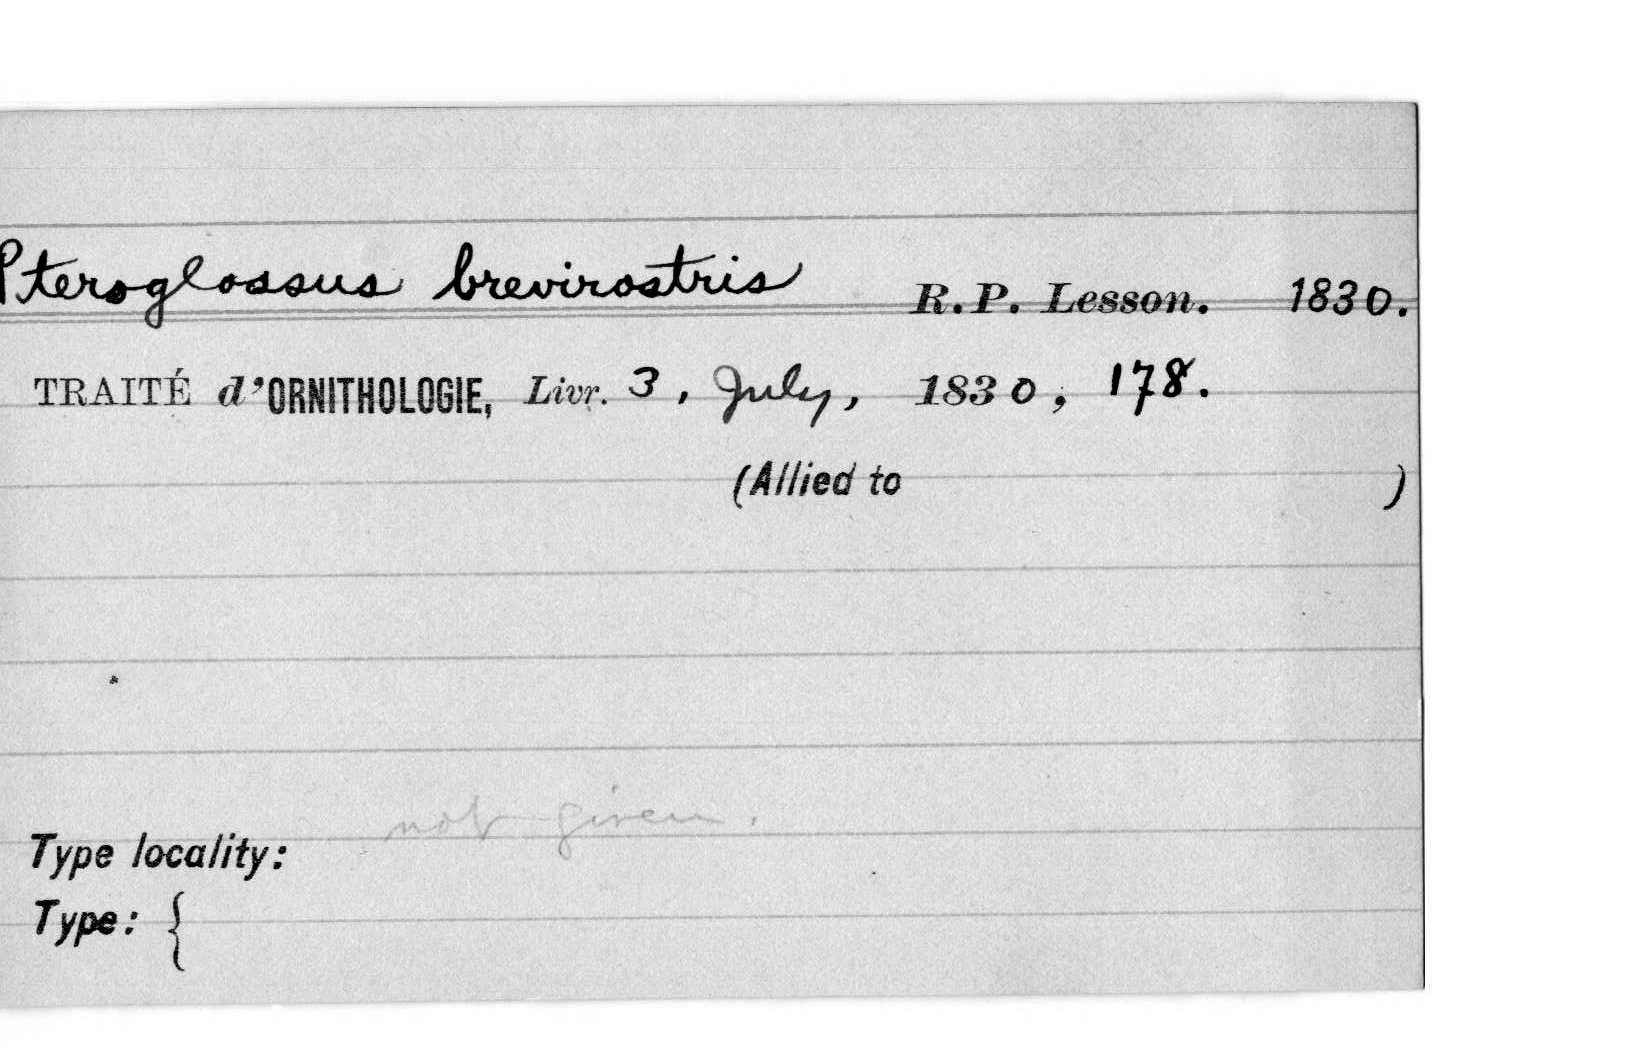 Pteroglossus brevirostris R.P. Lesson. 1830.
TRAITÉ d'ORNITHOLOGIE, Livr. 3, July, 1830; 178.
(Allied to )
not given.
Type locality:
Type: {